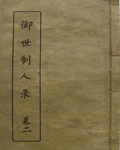 御世制人录 卷二